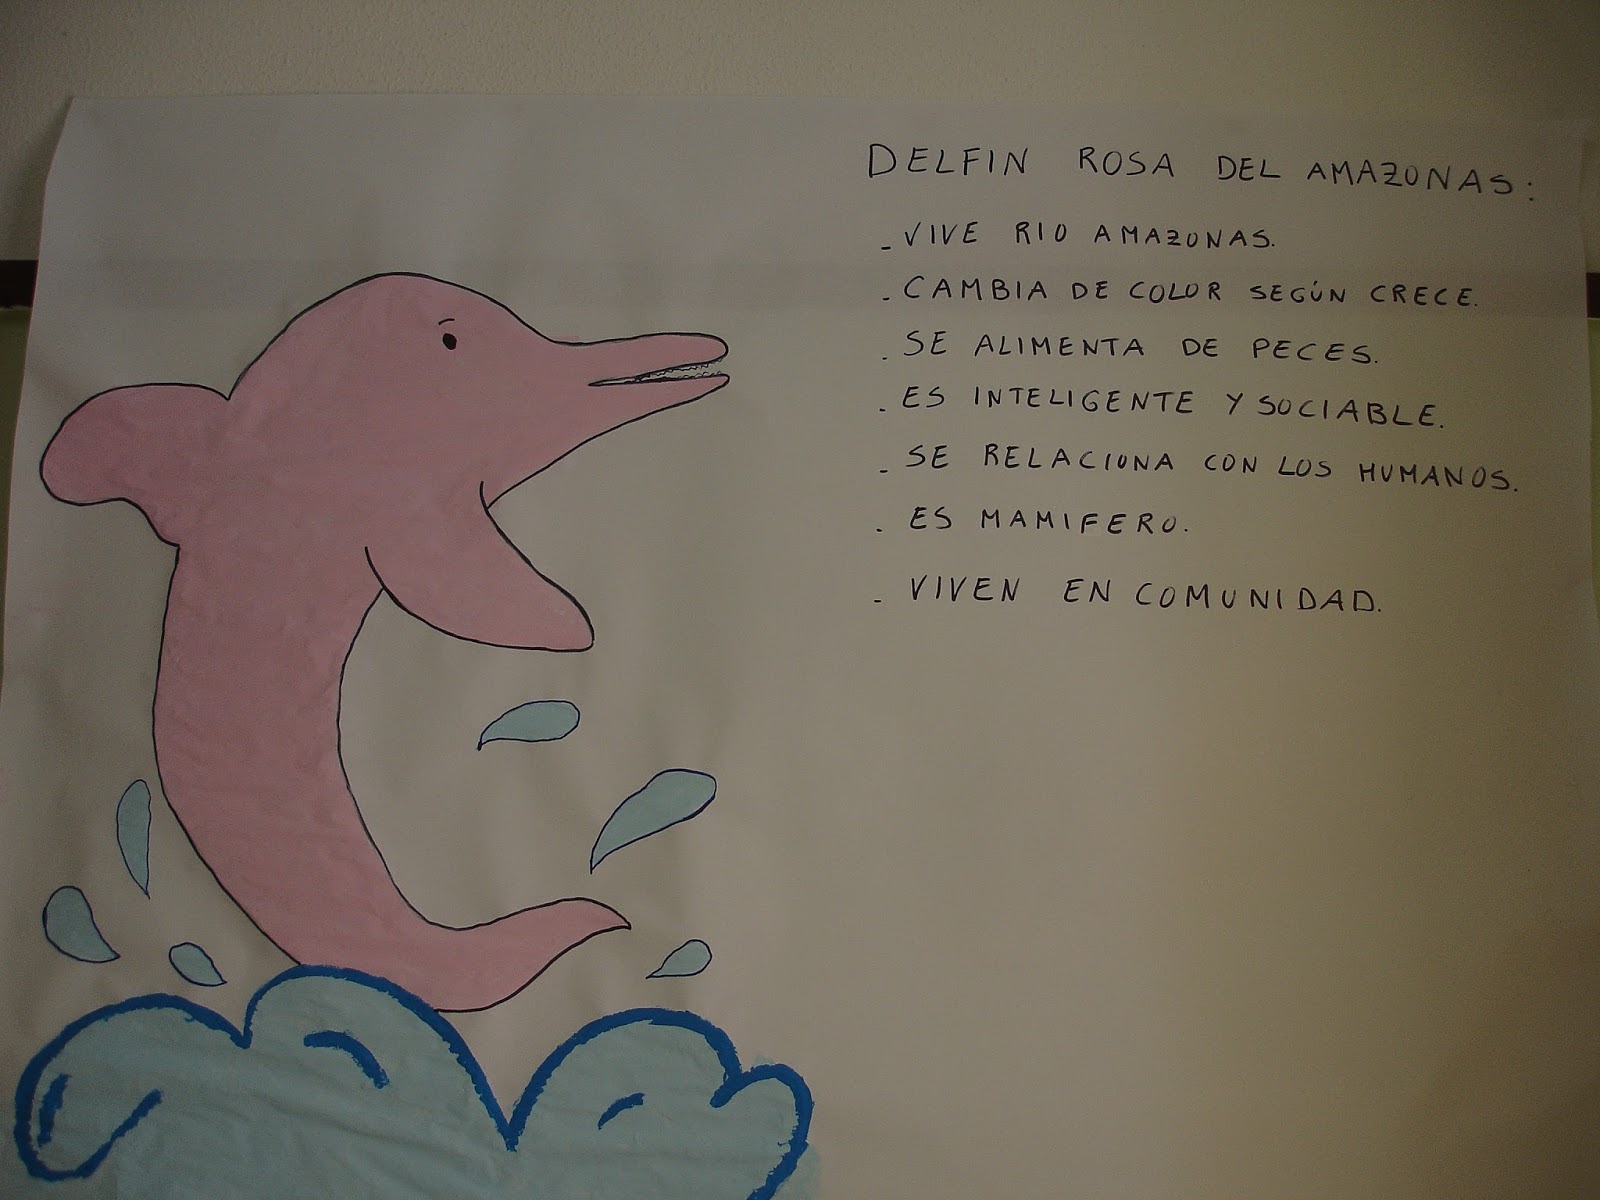 DELFIN ROSA DEL AMAZONAS:
- VIVE RIO AMAZONAS.
- CAMBIA DE COLOR SEGÚN CRECE.
- SE ALIMENTA DE PECES.
- ES INTELIGENTE Y SOCIABLE.
- SE RELACIONA CON LOS HUMANOS.
- ES MAMIFERO.
- VIVEN EN COMUNIDAD.